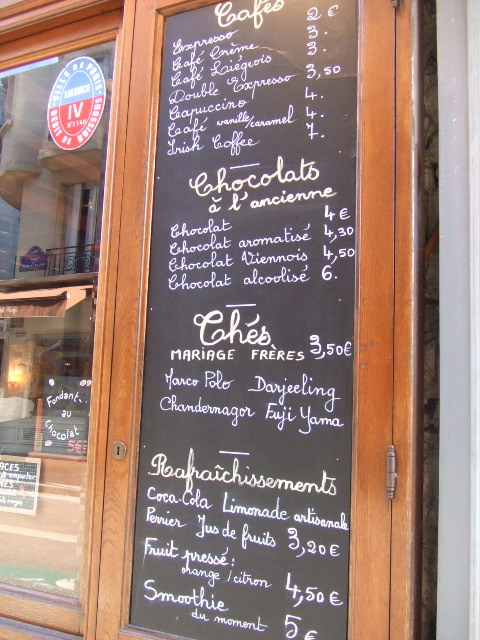 Cafés
Expresso 2 €
Café Crème 3.
Café Liégeois 3.
Double Expresso 3,50
Capuccino 4.
Café vanille/caramel 4.
Irish Coffee 7.
Chocolats
à l'ancienne
Chocolat 4 €
Chocolat aromatisé 4,30
Chocolat Viennois 4,50
Chocolat alcoolisé 6.
Thés
MARIAGE FRÈRES 3,50€
Marco Polo Darjeeling
Chandernagor Fuji Yama
Rafraîchissements
Coca-Cola Limonade artisanale
Perrier Jus de fruits 3,20 €
Fruit pressé:
orange/citron 4,50€
Smoothie
du moment 5 €
VILLE DE PARIS
LICENCE
IV
DEBIT DE BOISSONS
Fondant
au
Chocolat
5€
à emporter